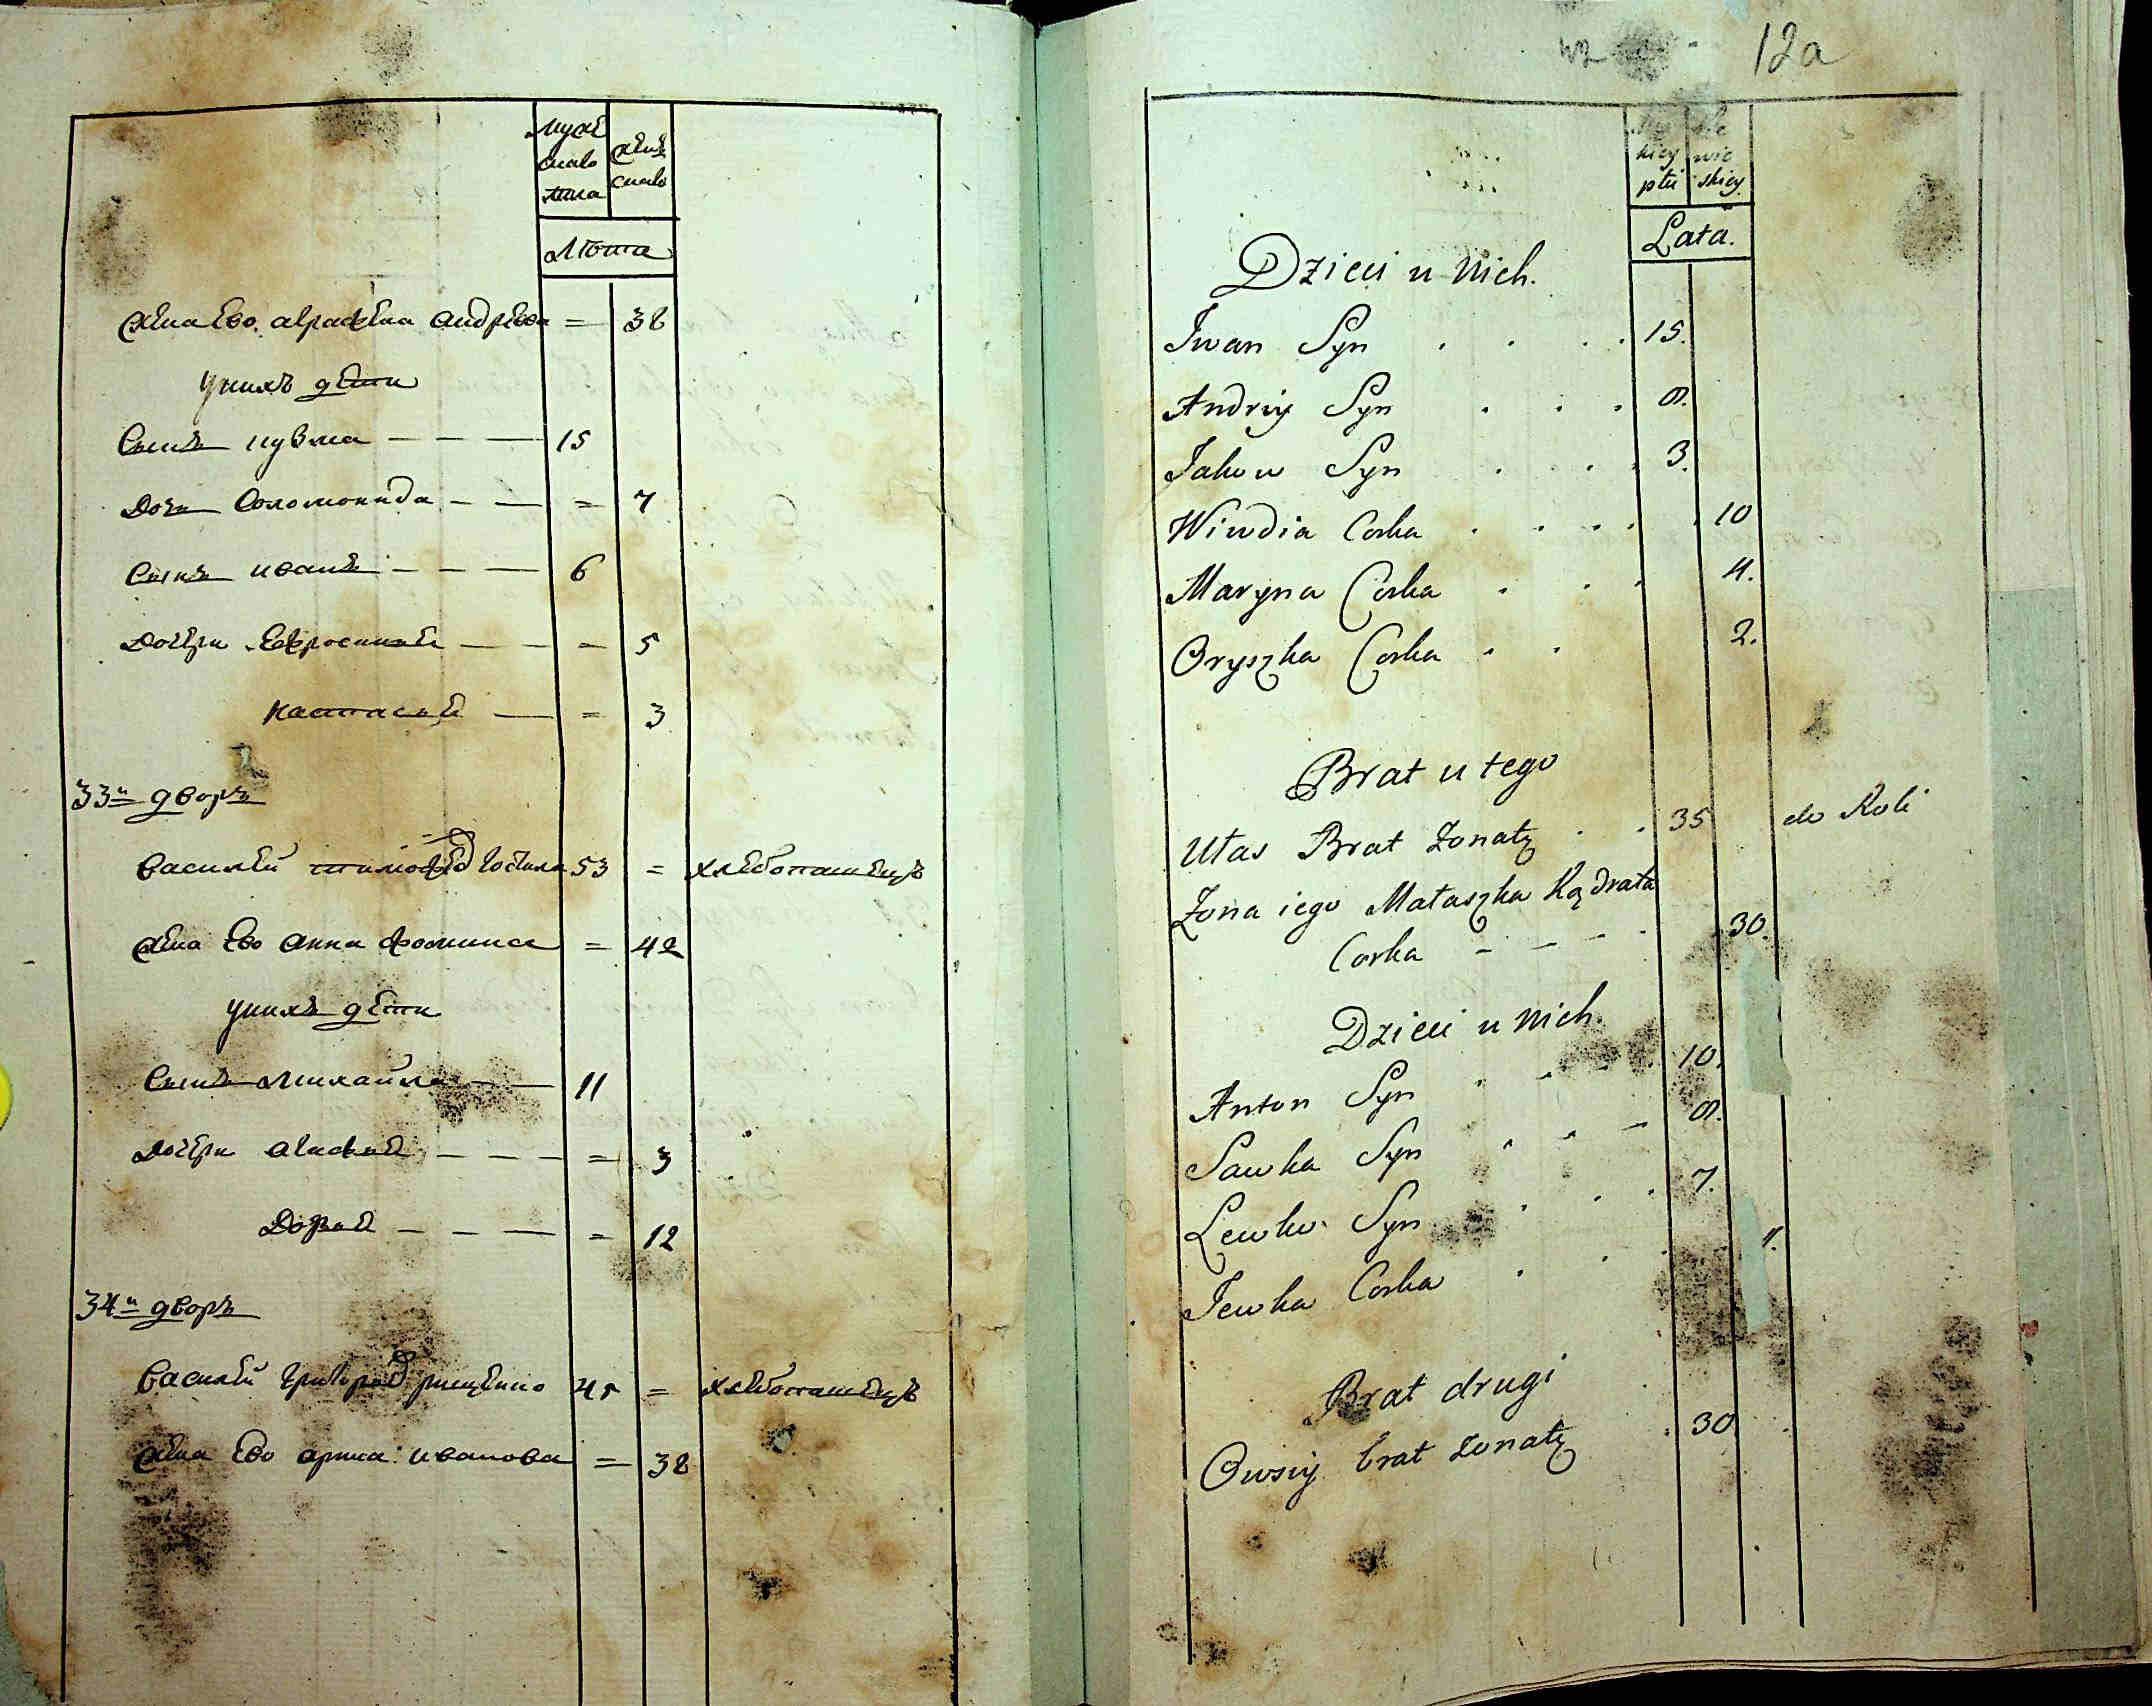 муже
скаго
пола
жен
скаго
Лѣта
жена Ево Аграфена Андреева = 38
у нихъ дети
Сынъ кузма — — — 15
Дочь Соломонида — — = 7
Сынъ иванъ — — — 6
Дочери Ефросиния — — = 5
настасья — = 3
33й дворъ
Василей тимофеев 53 = хлебопашецъ
жена Ево Анна фомина = 42
у нихъ дети
Сынъ михайла — — 11
Дочери Агафия — — — = 3
Дарья — — — = 12
34й дворъ
Василей григорьев 45 = хлебопашецъ
жена Ево арина иванова = 38
12a
kiey wie
płci skiey
Lata.
Dzieci u Nich.
Iwan Syn . . . . 15.
Andriy Syn . . . 8.
Jakow Syn . . . 3.
Wiwdia Corka . . . . 10
Maryna Corka . . . 4.
Oryszka Corka . . 2.
Brat u tego
Ułas Brat Zonaty . . 35 do Roli
Zona iego Małaszka Kądrata
Corka - - - - 30.
Dzieci u Nich.
Anton Syn . . . 10.
Sawka Syn . . . 8.
Lewko Syn . . . 7.
Jewka Corka . . . 1.
Brat drugi
Owsiy brat zonaty . 30